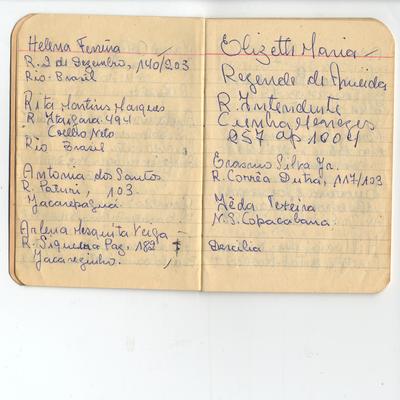 Helena Ferreira
R. 2 de Dezembro, 140/203
Rio-Brasil
Rita Martins Marques
R. 494
Coelho Neto
Rio Brasil
Antonia dos Santos
R. Paturi, 103
Jacarepaguá
Arlena Mesquita Veiga
R. Siqueira Paz, 182
Jacarezinho.
Elizeth Maria
Rezende de Almeida
R. Intendente
Cunha Menezes
257 ap 1004
Erasmo Silva Jr.
R. Corrêa Dutra, 117/103
Zêda Teixeira
N. S. Copacabana
Dercília